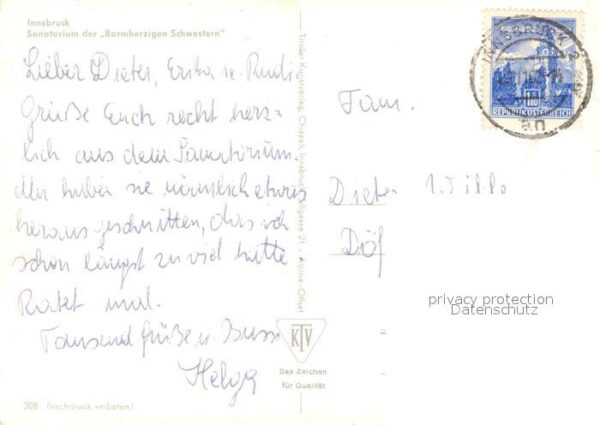 Innsbruck
Sanatorium der „Barmherzigen Schwestern"
Lieber Dieter, Erika u. Rudi
Grüße Euch recht herz=
lich aus dem Sanatorium.
Mir haben sie nämlich etwas
herausgeschnitten, das ich
schon längst zu viel hatte
Ratet mal.
Tausend Grüße u. Bussi
Helga
308 Nachdruck verboten!
Tiroler Kunstverlag Chizzali, Innsbruck, 21 - Alpina-Offset
KTV
Das Zeichen
für Qualität
INNSBRUCK 2
REPUBLIK ÖSTERREICH
Fam.
Dieter
privacy protection
Datenschutz